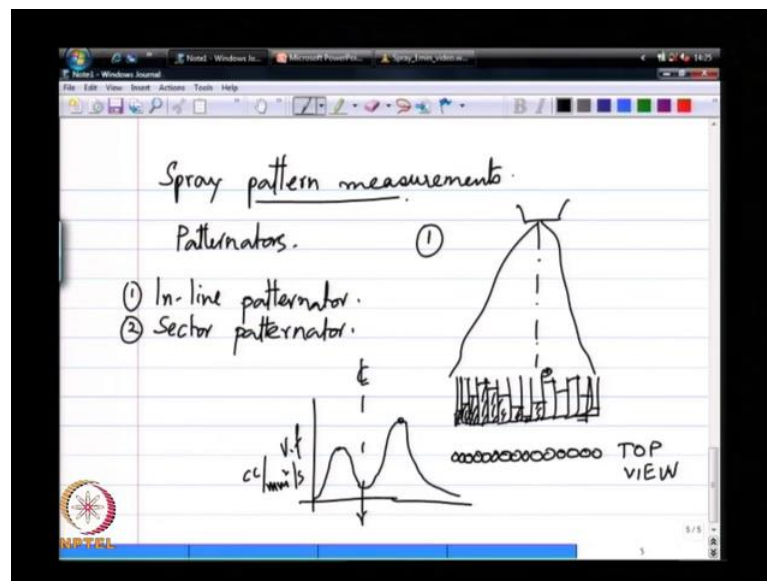 Note1 - Windows Jo...
Microsoft PowerPoi...
Spray_1min_video.w...
14:25
Note1 - Windows Journal
File Edit View Insert Actions Tools Help
B I
Spray pattern measurements.
Patternators.
①
① In-line patternator.
② Sector patternator.
℄
V.f
cc/mm²/s
TOP
VIEW
NPTEL
5/5
5